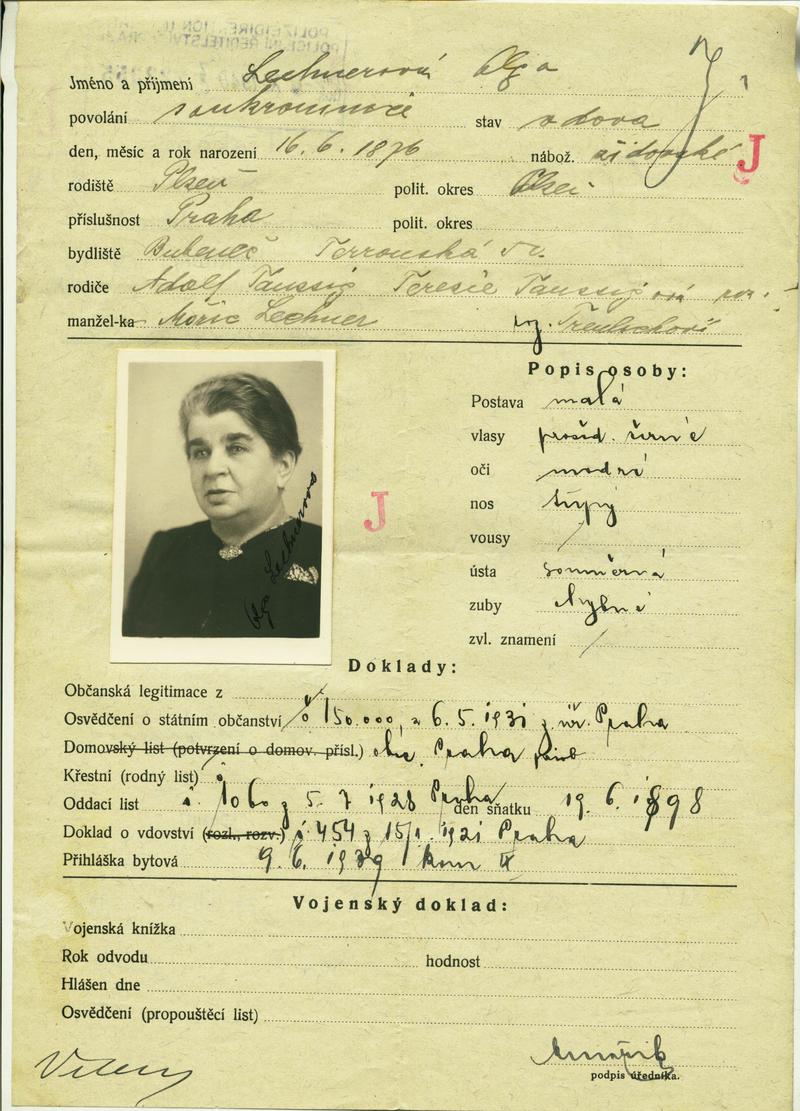 POLIZEIDIREKTION
POLICEJNÍ ŘEDITELSTVÍ
Jméno a příjmení Lechnerová Olga
povolání soukromnice stav vdova
den, měsíc a rok narození 16.6.1876 nábož. židovské J
rodiště Plzeň polit. okres Plzeň
příslušnost Praha polit. okres
bydliště Bubeneč Terronská
rodiče Adolf Taussig Teresie Taussigová roz.
manžel-ka Mořic Lechner roz.
Popis osoby:
Postava malá
vlasy prošed. černé
oči modré
nos tupý
vousy /
ústa souměrná
zuby chybné
zvl. znamení /
J
Olga Lechnerová
Doklady:
Občanská legitimace z
Osvědčení o státním občanství č 150.000, z 6.5.1931 z úř. Praha
Domovský list (potvrzení o domov. přísl.) obc. Praha
Křestní (rodný list)
Oddací list č. 1060 z 5.7.1928 Praha den sňatku 19.6.1898
Doklad o vdovství (rozl., rozv.) č 454 z 15/1. 1921 Praha
Přihláška bytová 9.6.1939 kom IX
Vojenský doklad:
Vojenská knížka
Rok odvodu hodnost
Hlášen dne
Osvědčení (propouštěcí list)
podpis úředníka.